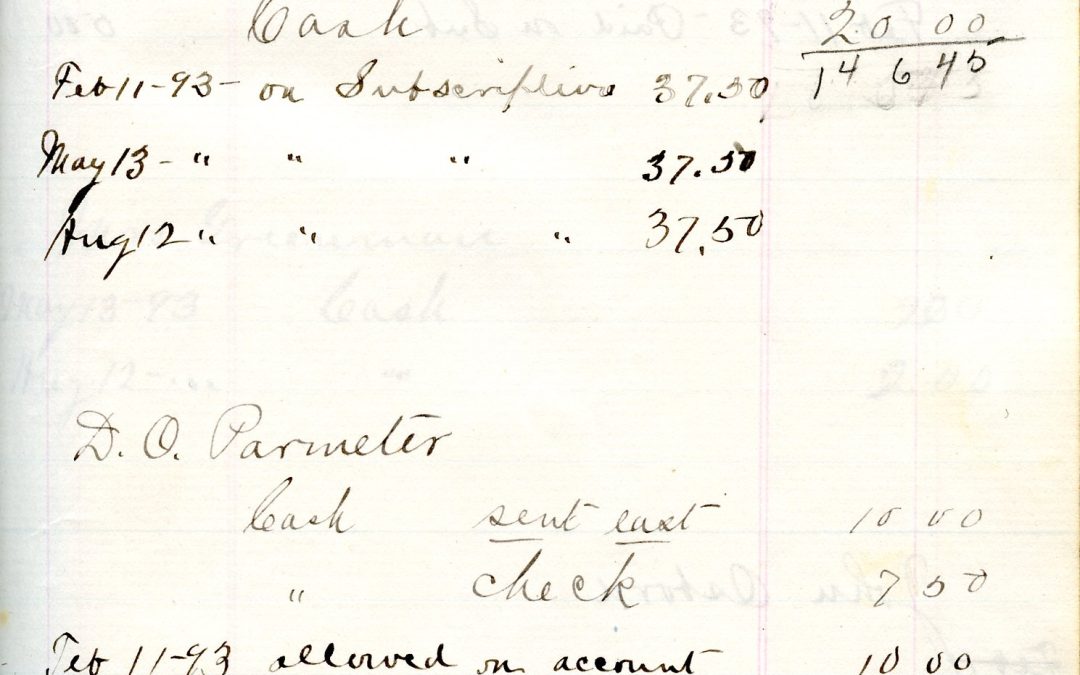 Cash 20 00
146 45
Feb 11-93- on Subscription 37.50
May 13- " " " 37.50
Aug 12 " " " 37.50
D. O. Parmeter
Cash sent east 10 00
" check 7 50
Feb 11-93 allowed on account 10 00